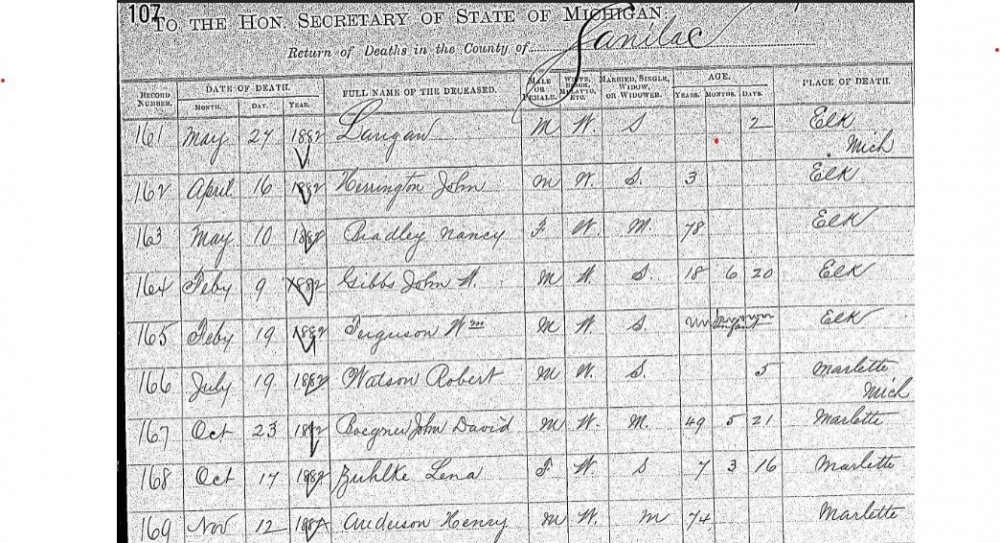 107
TO THE HON. SECRETARY OF STATE OF MICHIGAN:
Return of Deaths in the County of Sanilac
RECORD NUMBER. DATE OF DEATH. MONTH. DAY. YEAR. FULL NAME OF THE DECEASED. MALE OR FEMALE. WHITE, BLACK, MULATTO, ETC. MARRIED, SINGLE, WIDOW, OR WIDOWER. AGE. YEARS. MONTHS. DAYS. PLACE OF DEATH.
161 May 27 1882 Langan M W. S 2 Elk Mich
162 April 16 1882 Herrington John M W. S. 3 Elk
163 May 10 1882 Bradley Nancy F. W M. 78 Elk
164 Feby 9 1882 Gibbs John W. M W. S 18 6 20 Elk
165 Feby 19 1882 Ferguson Wm M W. S. Infant Elk
166 July 19 1882 Watson Robert M W. S. 5 Marlette Mich
167 Oct 23 1882 John David M W. M. 49 5 21 Marlette
168 Oct 17 1882 Zuhlke Lena F. W. S 7 3 16 Marlette
169 Nov 12 1882 Anderson Henry M W. M 74 Marlette